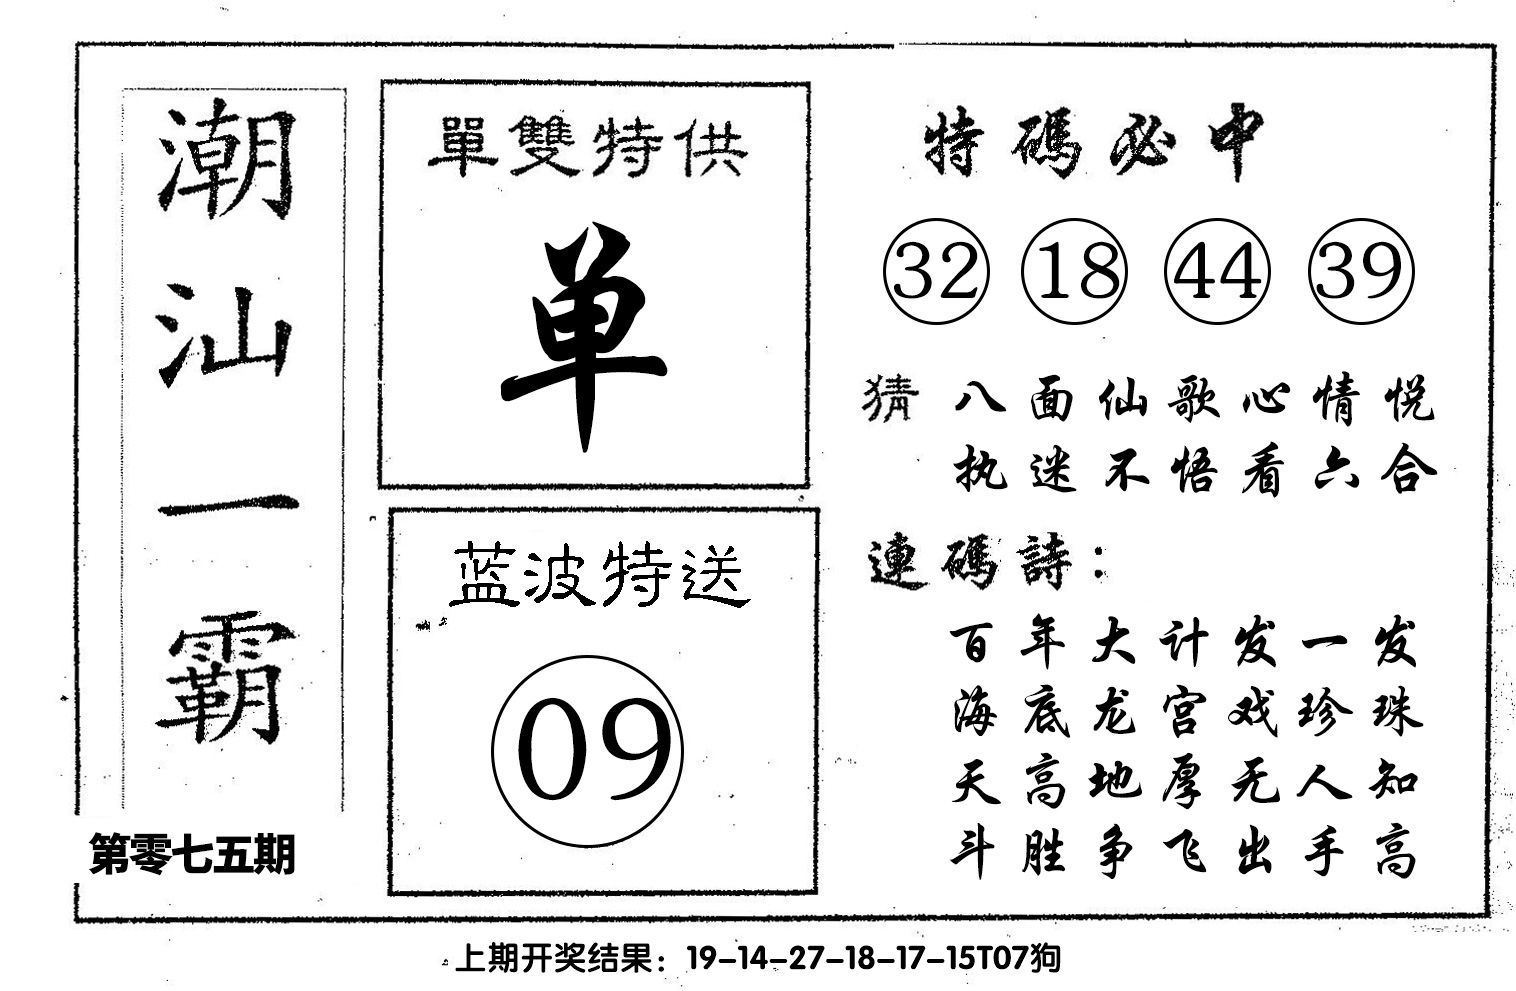 潮汕一霸
第零七五期
單雙特供
单
蓝波特送
09
特碼必中
32 18 44 39
猜 八面仙歌心情悦
执迷不悟看六合
連碼詩：
百年大计发一发
海底龙宫戏珍珠
天高地厚无人知
斗胜争飞出手高
上期开奖结果：19-14-27-18-17-15T07狗